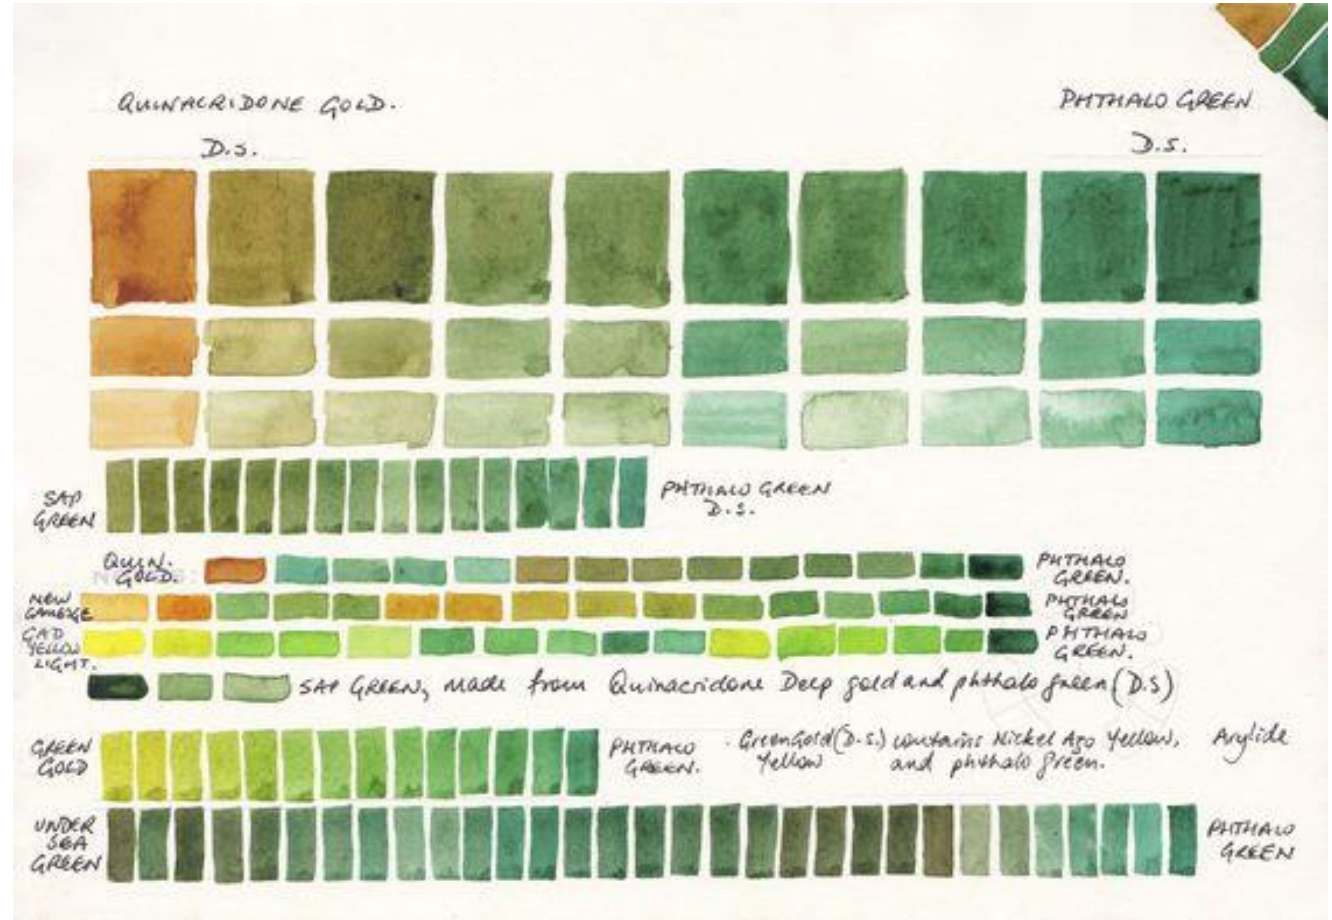 QUINACRIDONE GOLD.
D.S.
PHTHALO GREEN
D.S.
SAP
GREEN
PHTHALO GREEN
D.S.
QUIN.
GOLD.
PHTHALO
GREEN.
NEW
GAMBOGE
PHTHALO
GREEN
CAD
YELLOW
LIGHT.
PHTHALO
GREEN.
SAP GREEN, made from Quinacridone Deep gold and phthalo green (D.S)
GREEN
GOLD
PHTHALO
GREEN.
Green Gold (D.S.) contains Nickel Azo Yellow, Arylide
Yellow and phthalo green.
UNDER
SEA
GREEN
PHTHALO
GREEN